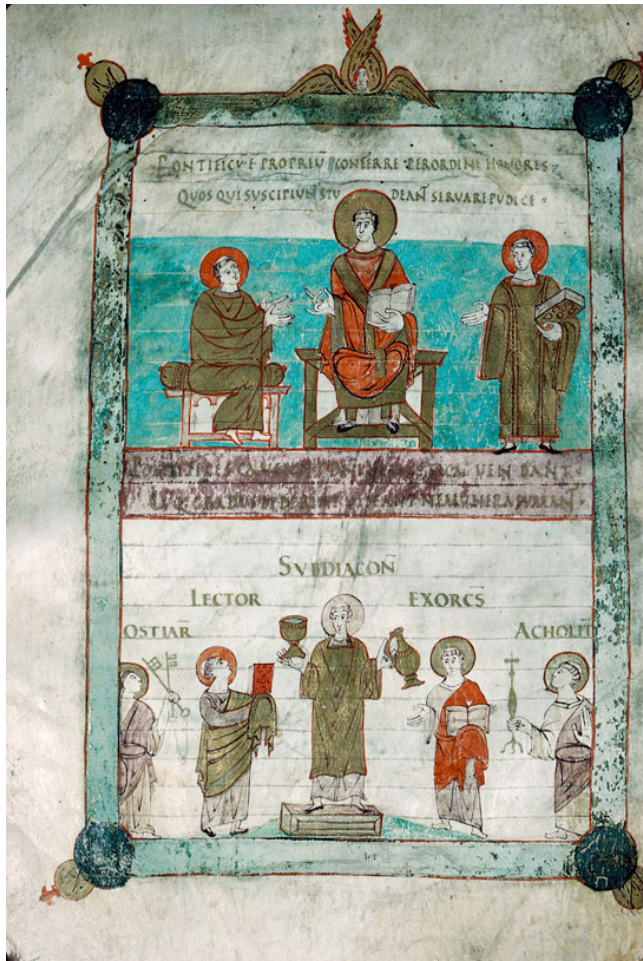 PONTIFICV̄ Ē PROPRIŪ CONFERRE PERORDINE HONORES·
QUOS QUI SUSCIPIUN̄ STUDEAN̄ SERVARE PUDICE·
PONTIFICES CAVEANT VENDANT·
GRADUS NE MUNERA SUMAN̄·
SVBDIACOÑ
LECTOR EXORCS̄
OSTIAR̄ ACHOLIT̄